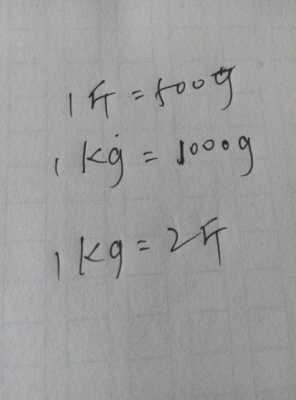 1斤=500g
1Kg=1000g
1Kg=2斤